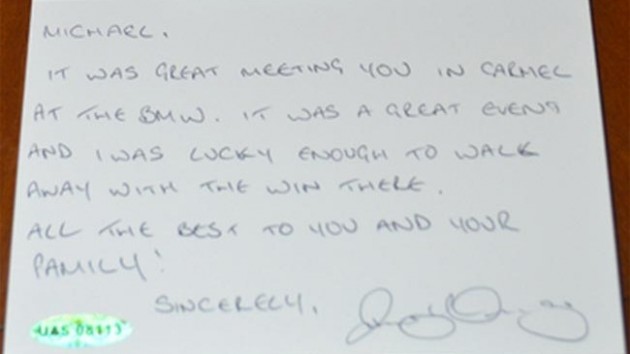 MICHAEL.
IT WAS GREAT MEETING YOU IN CARMEL
AT THE BMW. IT WAS A GREAT EVENT
AND I WAS LUCKY ENOUGH TO WALK
AWAY WITH THE WIN THERE.
ALL THE BEST TO YOU AND YOUR
FAMILY!
SINCERELY,
UAS 08113